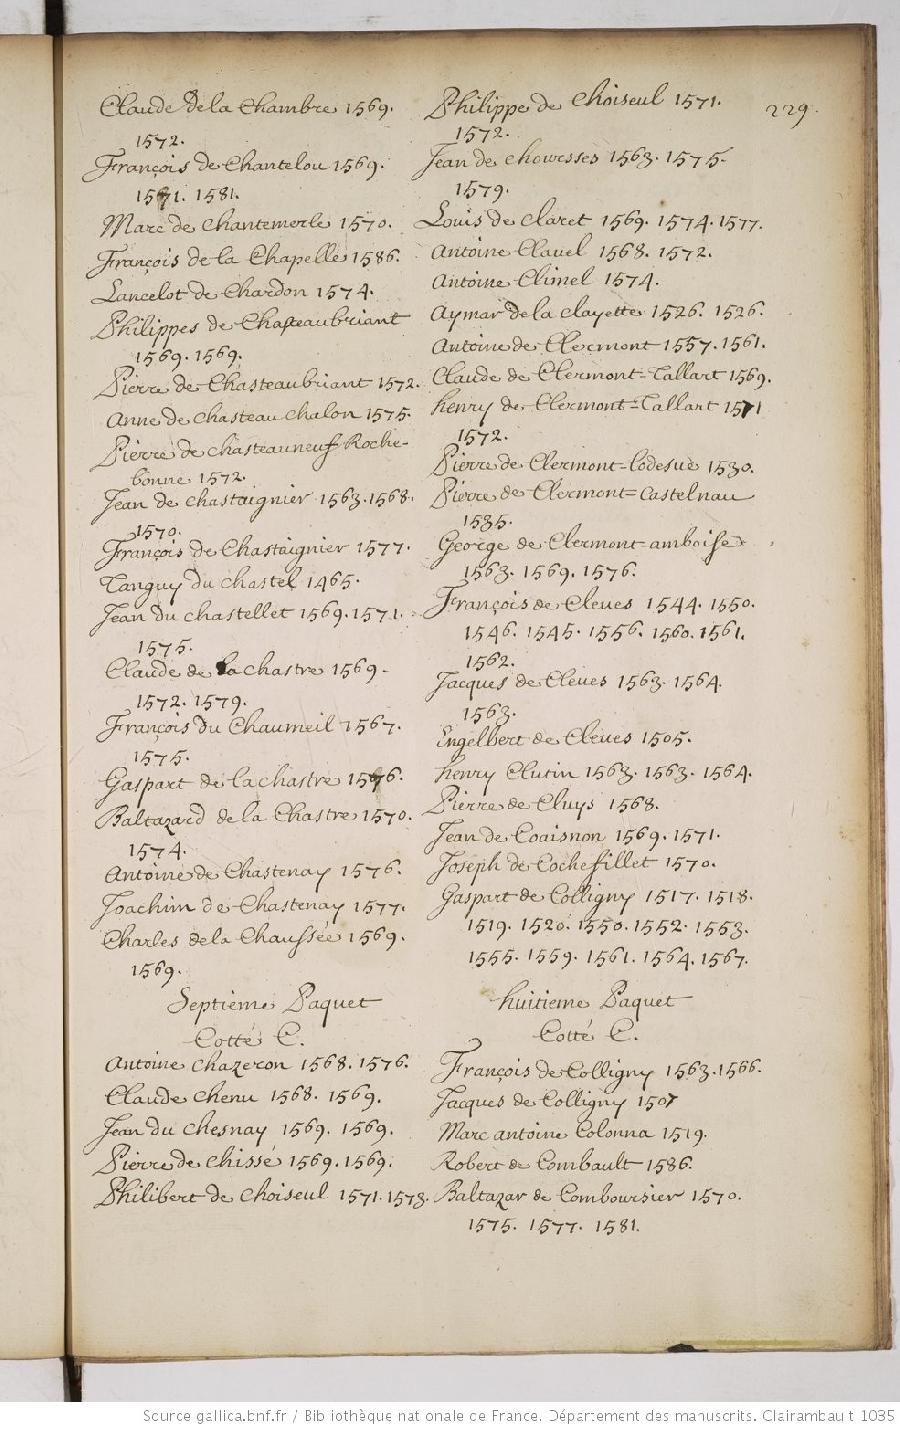 229.
Claude de la Chambre 1569.
1572.
François de Chantelou 1569.
1571. 1581.
Marc de Chantemerle 1570.
François de la Chapelle 1586.
Lancelot de Chardon 1574.
Philippes de Chasteaubriant
1569. 1569.
Pierre de Chasteaubriant 1572.
Anne de Chasteau Chalon 1575.
Pierre de chasteauneuf Roche-
bonne 1572
Jean de chastaignier 1563. 1568.
1570.
François de Chastaignier 1577.
Tanguy du chastel 1465.
Jean du chastellet 1569. 1571.
1575.
Claude de la chastre 1569.
1572. 1579.
François du Chaumeil 1567.
1575.
Gaspart de la chastre 1576.
Baltazard de la Chastre 1570.
1574.
Antoine de Chastenay 1576.
Joachim de Chastenay 1577.
Charles de la Chaussée 1569.
1569.
Septieme Paquet
Cotté C.
Antoine chazeron 1568. 1576.
Claude chenu 1568. 1569.
Jean du chesnay 1569. 1569.
Pierre de chissé 1569. 1569.
Philibert de choiseul 1571. 1573.
Philippe de choiseul 1571.
1572.
Jean de chourses 1563. 1575.
1579.
Louis de claret 1569. 1574. 1577.
Antoine Clavel 1568. 1572.
Antoine Climel 1574.
Aymar de la clayette 1526. 1526.
Antoine de Clermont 1557. 1561.
Claude de Clermont=Tallart 1569.
henry de Clermont=Tallart 1571
1572.
Pierre de Clermont-Lodesue 1530.
Pierre de Clermont=Castelnau
1535.
George de Clermont amboise
1563. 1569. 1576.
François de Cleves 1544. 1550.
1546. 1545. 1556. 1560. 1561.
1562.
Jacques de Cleves 1563. 1564.
1563.
Engelbert de Cleves 1505.
henry Clutin 1563. 1563. 1564.
Pierre de Cluys 1568.
Jean de Coaisnon 1569. 1571.
Joseph de Cochefillet 1570.
Gaspart de Colligny 1517. 1518.
1519. 1520. 1550. 1552. 1553.
1555. 1559. 1561. 1564. 1567.
huitieme Paquet
Cotté C.
François de Colligny 1563. 1566.
Jacques de Colligny 1507
Marc antoine Colonna 1519.
Robert de Combault 1586.
Baltazar de Comboursier 1570.
1575. 1577. 1581.
Source gallica.bnf.fr / Bibliothèque nationale de France. Département des manuscrits. Clairambault 1035